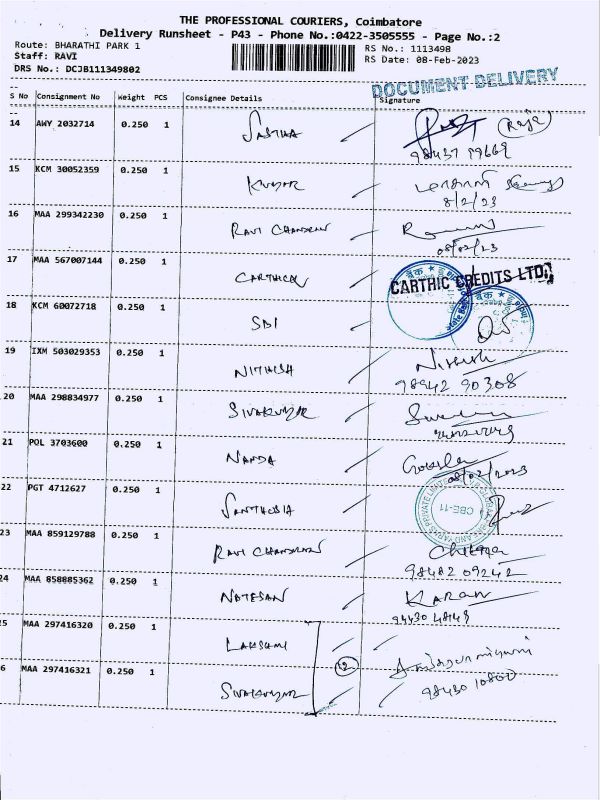 THE PROFESSIONAL COURIERS, Coimbatore
Delivery Runsheet - P43 - Phone No.:0422-3505555 - Page No.:2
Route: BHARATHI PARK 1
RS No.: 1113498
Staff: RAVI
RS Date: 08-Feb-2023
DRS No.: DCJB111349802
DOCUMENT DELIVERY
S No Consignment No Weight PCS Consignee Details Signature
14 AWY 2032714 0.250 1 SASTHA (Raja)
98437 99669
15 KCM 30052359 0.250 1 KUMAR
8/2/23
16 MAA 299342230 0.250 1 RAVI CHANDRAN
08/02/23
17 MAA 567007144 0.250 1 CARTHICK CARTHIC CREDITS LTD.
18 KCM 60072718 0.250 1 SBI
19 IXM 503029353 0.250 1 NITHISH Nithish
98942 90308
20 MAA 298834977 0.250 1 SIVAKUMAR
21 POL 3703600 0.250 1 NANDA
08/02/2023
22 PGT 4712627 0.250 1 SANTHOSIA
CBE-11
23 MAA 859129788 0.250 1 RAVI CHANDRAN
98482 09242
24 MAA 858885362 0.250 1 NATESAN KARAN
94430 48149
25 MAA 297416320 0.250 1 LAKSHMI
2
26 MAA 297416321 0.250 1 SIVAKUMAR
98430 10800